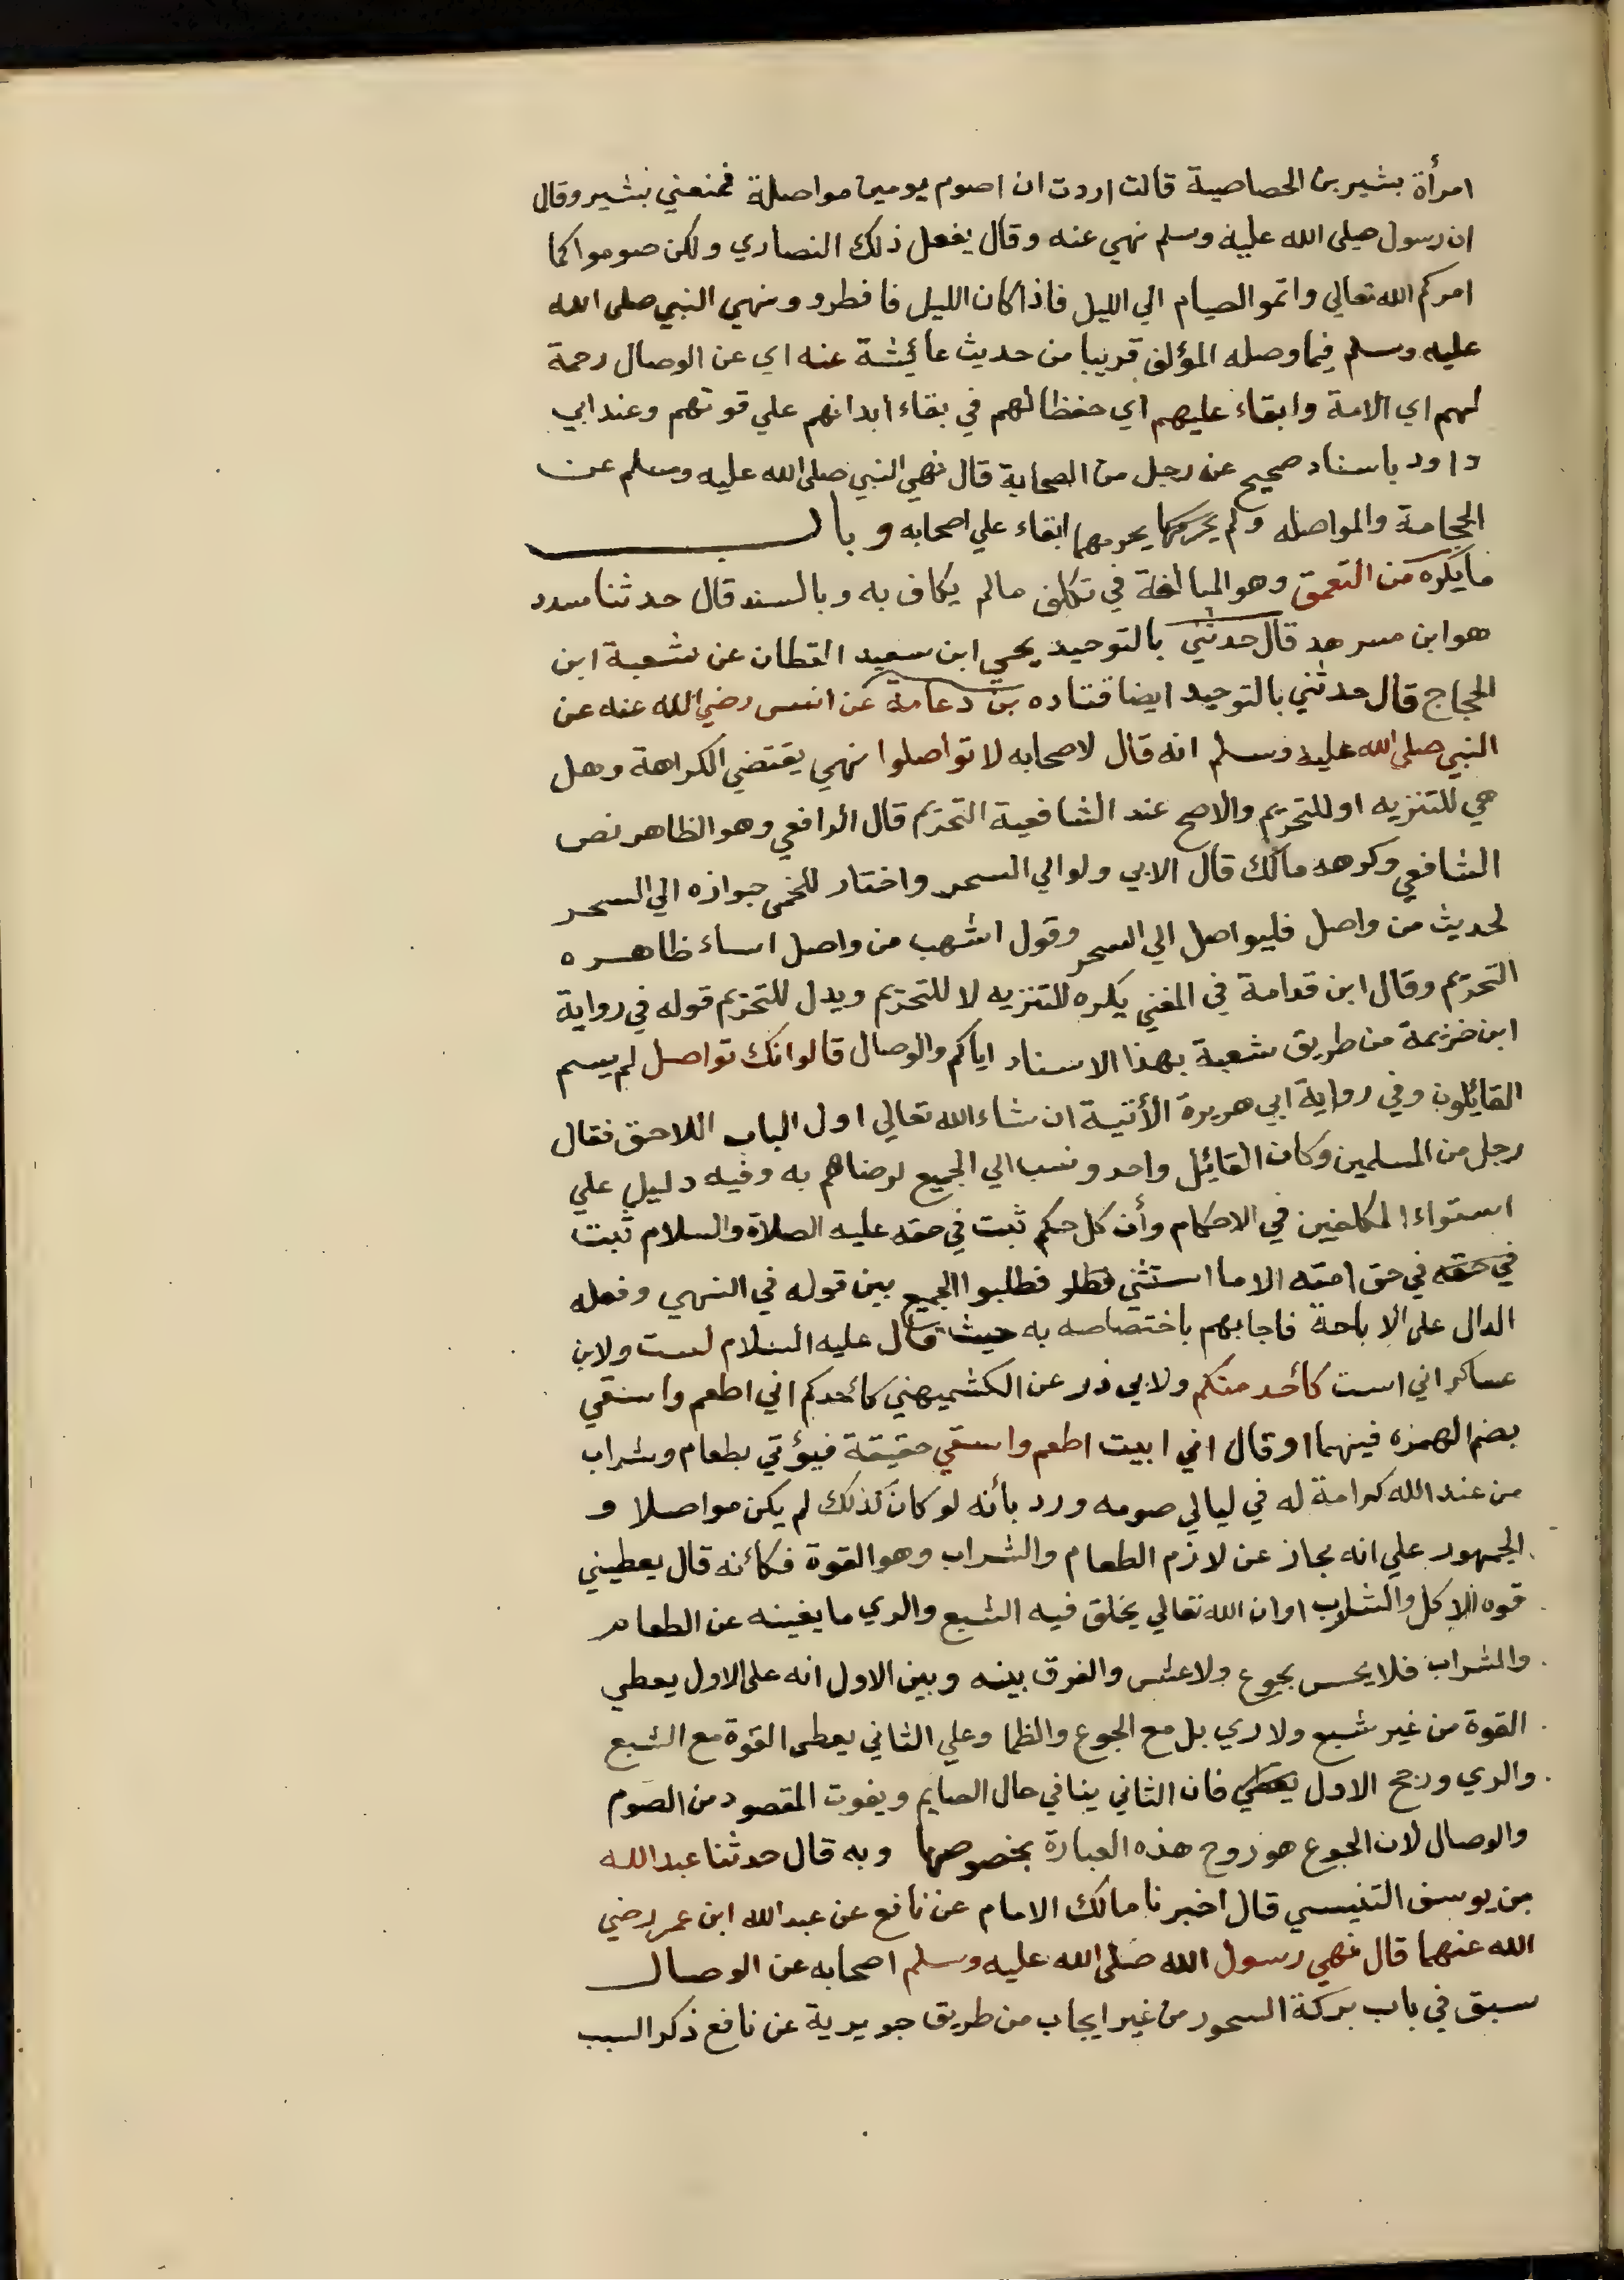 امرأة بشير بن الخصاصية قالت اردت ان اصوم يومين مواصلة فمنعني بشير وقال
ان رسول صلى الله عليه وسلم نهي عنه وقال يفعل ذلك النصاري ولكن صوموا كما
امركم الله تعالي واتموالصيام الي الليل فاذا كان الليل فافطرو ونهي النبي صلى الله
عليه وسلم فيما وصله المؤلف قريبا من حديث عائيشة عنه اي عن الوصال رحمة
لهم اي الامة وابقاء عليهم اي حفظا لهم في بقاء ابدانهم علي قوتهم وعند ابي
داود باسناد صحيح عن رجل من الصحابة قال نهي النبي صلى الله عليه وسلم عن
الحجامة والمواصله ولم يحرمها يحرمهما ابقاء علي اصحابه و باب
ما يكره من التعمق وهو المبالغة في تكلف مالم يكلف به وبالسند قال حدثنا مسدد
هو ابن مسرهد قال حدثني بالتوحيد يحيي ابن سعيد القطان عن شعبة ابن
الحجاج قال حدثني بالتوحيد ايضا قتاده بن دعامة عن انس رضي الله عنه عن
النبي صلى الله عليه وسلم انه قال لاصحابه لا تواصلوا نهي يقتضي الكراهة وهل
هي للتنزيه او للتحريم والاصح عند الشافعية التحريم قال الرافعي وهو الظاهر نص
الشافعي وكرهه مالك قال الابي ولو الي السحر واختار للخمي جوازه الي السحر
لحديث من واصل فليواصل الي السحر وقول اشهب من واصل اساء ظاهره
التحريم وقال ابن قدامة في المغني يكره للتنزيه لا للتحريم ويدل للتحريم قوله في رواية
ابن خزيمة من طريق شعبة بهذا الاسناد اياكم والوصال قالوا انك تواصل لم يسم
القايلون وفي رواية ابي هريرة الأتية ان شاء الله تعالي اول الباب اللاحق فقال
رجل من المسلمين وكان القائيل واحد ونسب الي الجميع لرضاهم به وفيه دليل علي
استواء المكلفين في الاحكام وأن كل حكم ثبت في حقه عليه الصلاة والسلام ثبت
في حقه في حق امته الا ما استثني فطلو فطلبوا الجمع بين قوله في النهي وفعله
الدال على الاباحة فاجابهم باختصاصه به حيث قال عليه السلام لست ولابن
عساكر اني لست كأحد منكم ولابي ذر عن الكشميهني كأحدكم اني اطعم واسقي
بضم الهمزه فيهما او قال اني ابيت اطعم واسقي حقيقة فيؤتي بطعام وشراب
من عند الله كرامة له في ليالي صومه ورد بأنه لو كان كذلك لم يكن مواصلا و
الجمهور علي انه مجاز عن لازم الطعام والشراب وهو القوة فكأنه قال يعطيني
قوه الاكل والشارب اوان الله تعالي يخلق فيه الشبع والري ما يغينه عن الطعام
والشراب فلا يحس بجوع ولا عطش والفرق بينه وبين الاول انه على الاول يعطي
القوة من غير شبع ولا ري بل مع الجوع والظما وعلي الثاني يعطى القوة مع الشبع
والري ورجح الاول يعطي فان الثاني ينافي حال الصايم ويفوت المقصود من الصوم
والوصال لان الجوع هو روح هذه العبارة بخصوصها وبه قال حدثنا عبد الله
بن يوسف التنيسي قال اخبرنا مالك الامام عن نافع عن عبد الله ابن عمر رضي
الله عنهما قال نهي رسول الله صلى الله عليه وسلم اصحابه عن الوصال
سبق في باب بركة السحور من غير ايجاب من طريق جويرية عن نافع ذكر السبب